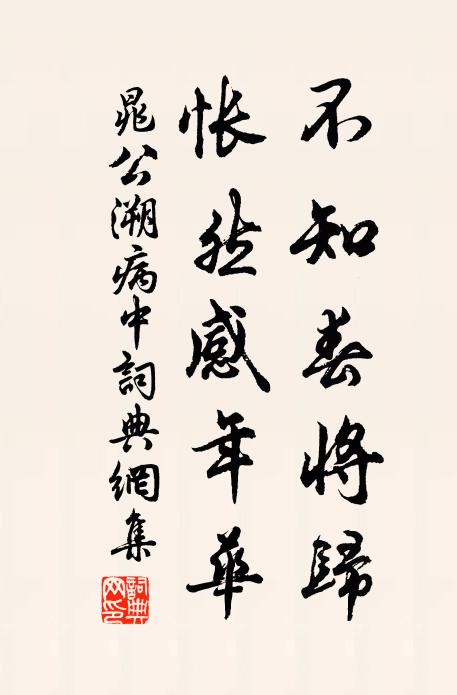 不知春将歸
悵然感年華
晁公溯病中詞典網集
詞典网印